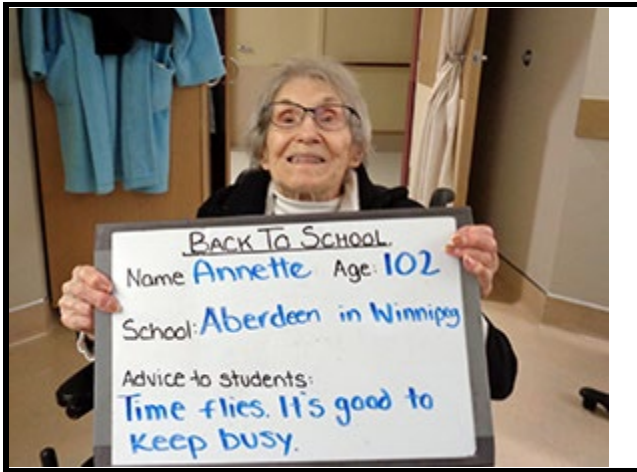 BACK TO SCHOOL.
Name Annette Age: 102
School: Aberdeen in Winnipeg
Advice to students:
Time flies. It's good to
keep busy.